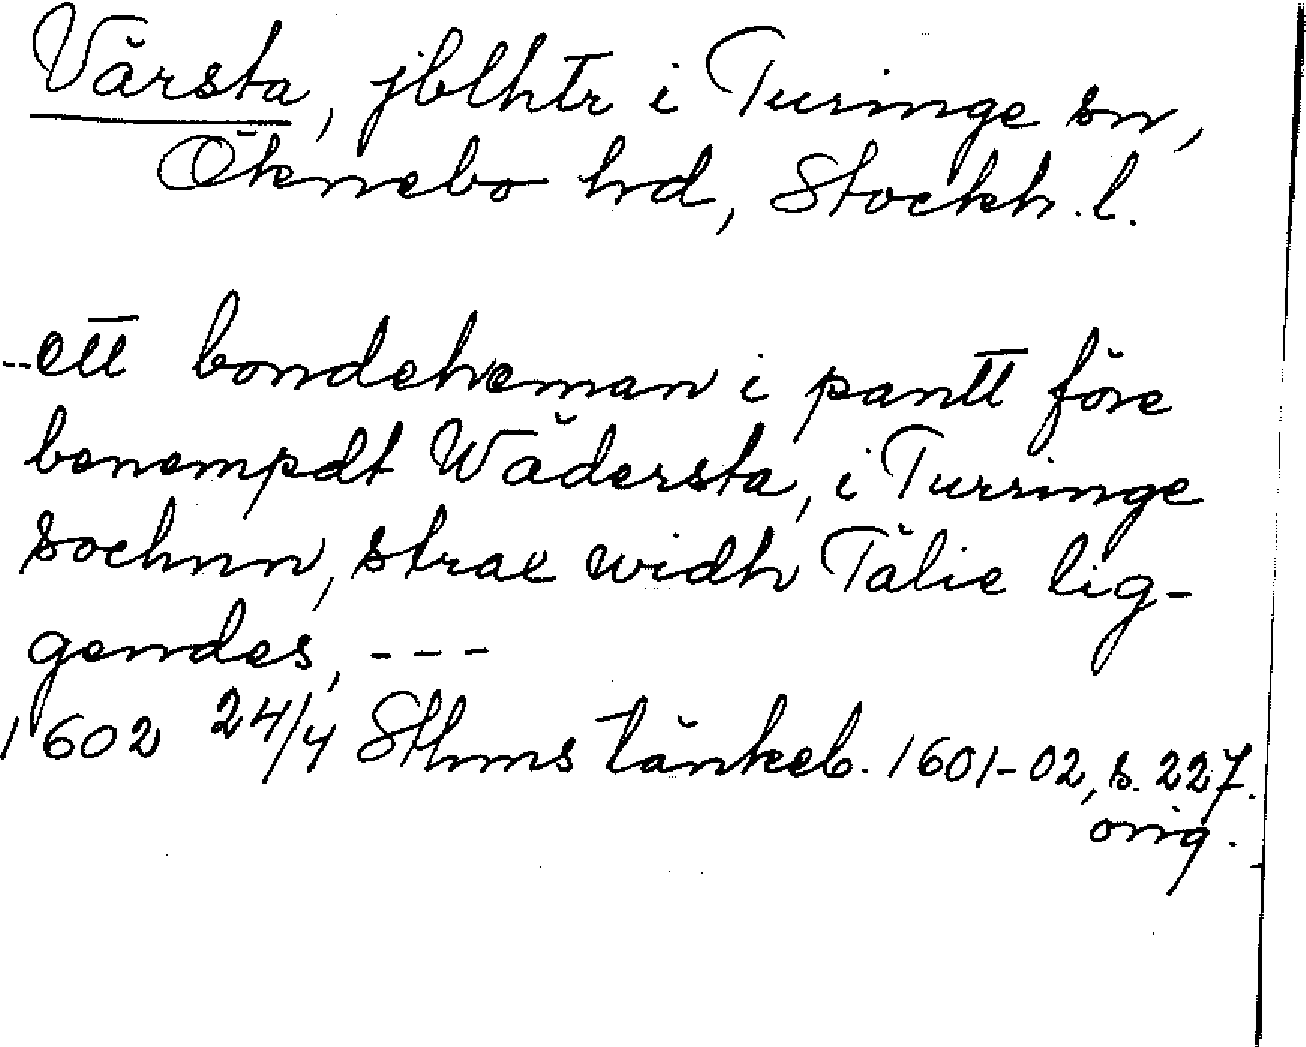 Värsta, jblhtr i Turinge sn,
Öknebo hd, Stockh. l.
--ett bondeheman i pantt före
benempdt Wädersta, i Turringe
sochnn, strax widh Tälie lig-
gendes, ---
1602 24/4 Sthms tänkeb. 1601-02, s. 227.
orig.